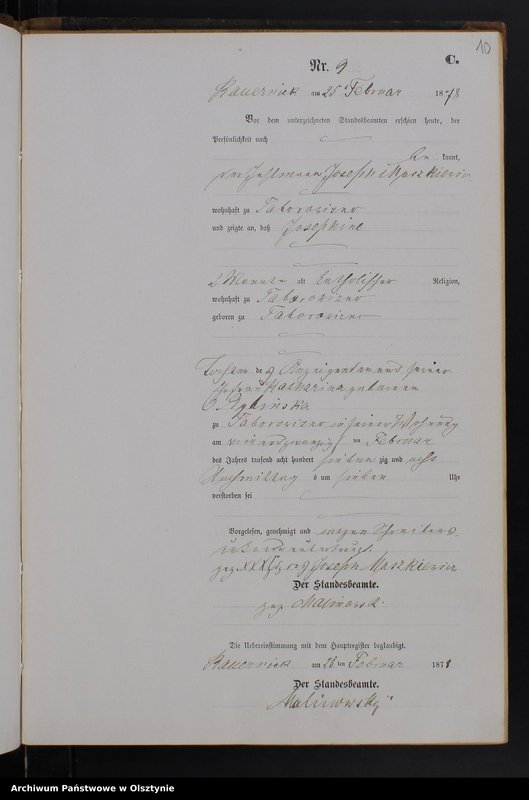 10
C.
Nr. 9
Kauernick am 25 Februar 1878
Vor dem unterzeichneten Standesbeamten erschien heute, der
Persönlichkeit nach
be kannt,
Joseph Maszkiewicz
wohnhaft zu Taborowizno
und zeigte an, daß Josephine
2 Monate alt katholischer Religion,
wohnhaft zu Taborowizno
geboren zu Taborowizno
Tochter des Anzeigenden und seiner
Ehefrau Katharina geborenen
Rybinska
zu Taborowizno in seiner Wohnung
am vier und zwanzig ten Februar
des Jahres tausend acht hundert sieben zig und acht
Nachmittags um sieben Uhr
verstorben sei
Vorgelesen, genehmigt und wegen Schreibens-
gez. XXX Joseph Maszkiewicz
Der Standesbeamte.
gez Malinowsk.
Die Uebereinstimmung mit dem Hauptregister beglaubigt.
Kauernick am 25 ten Februar 1878
Der Standesbeamte.
Malinowsky
Archiwum Państwowe w Olsztynie